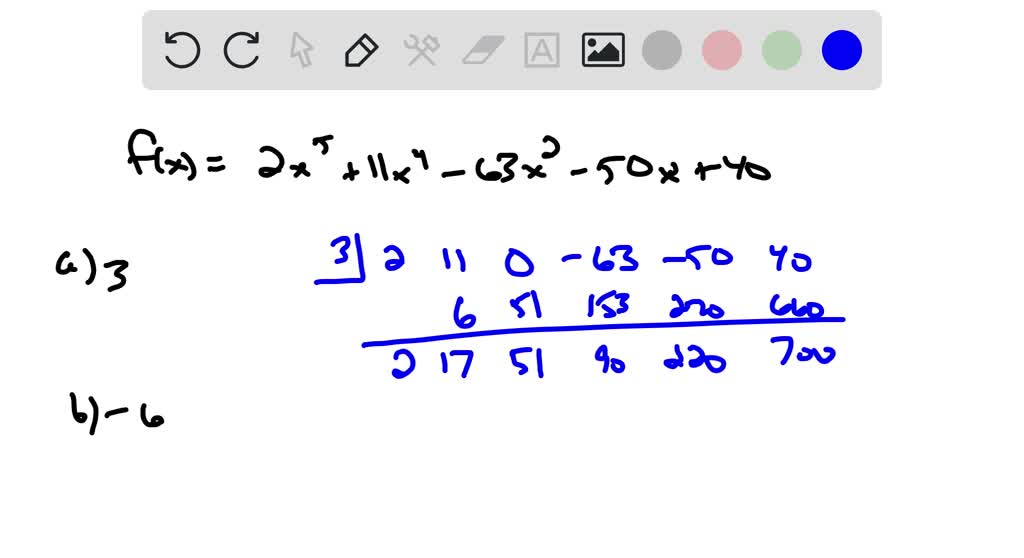 f(x) = 2x⁵ + 11x⁴ - 63x² - 50x + 40
a) 3
3 2 11 0 -63 -50 40
6 51 153 270 660
2 17 51 90 220 700
b) - 6
A